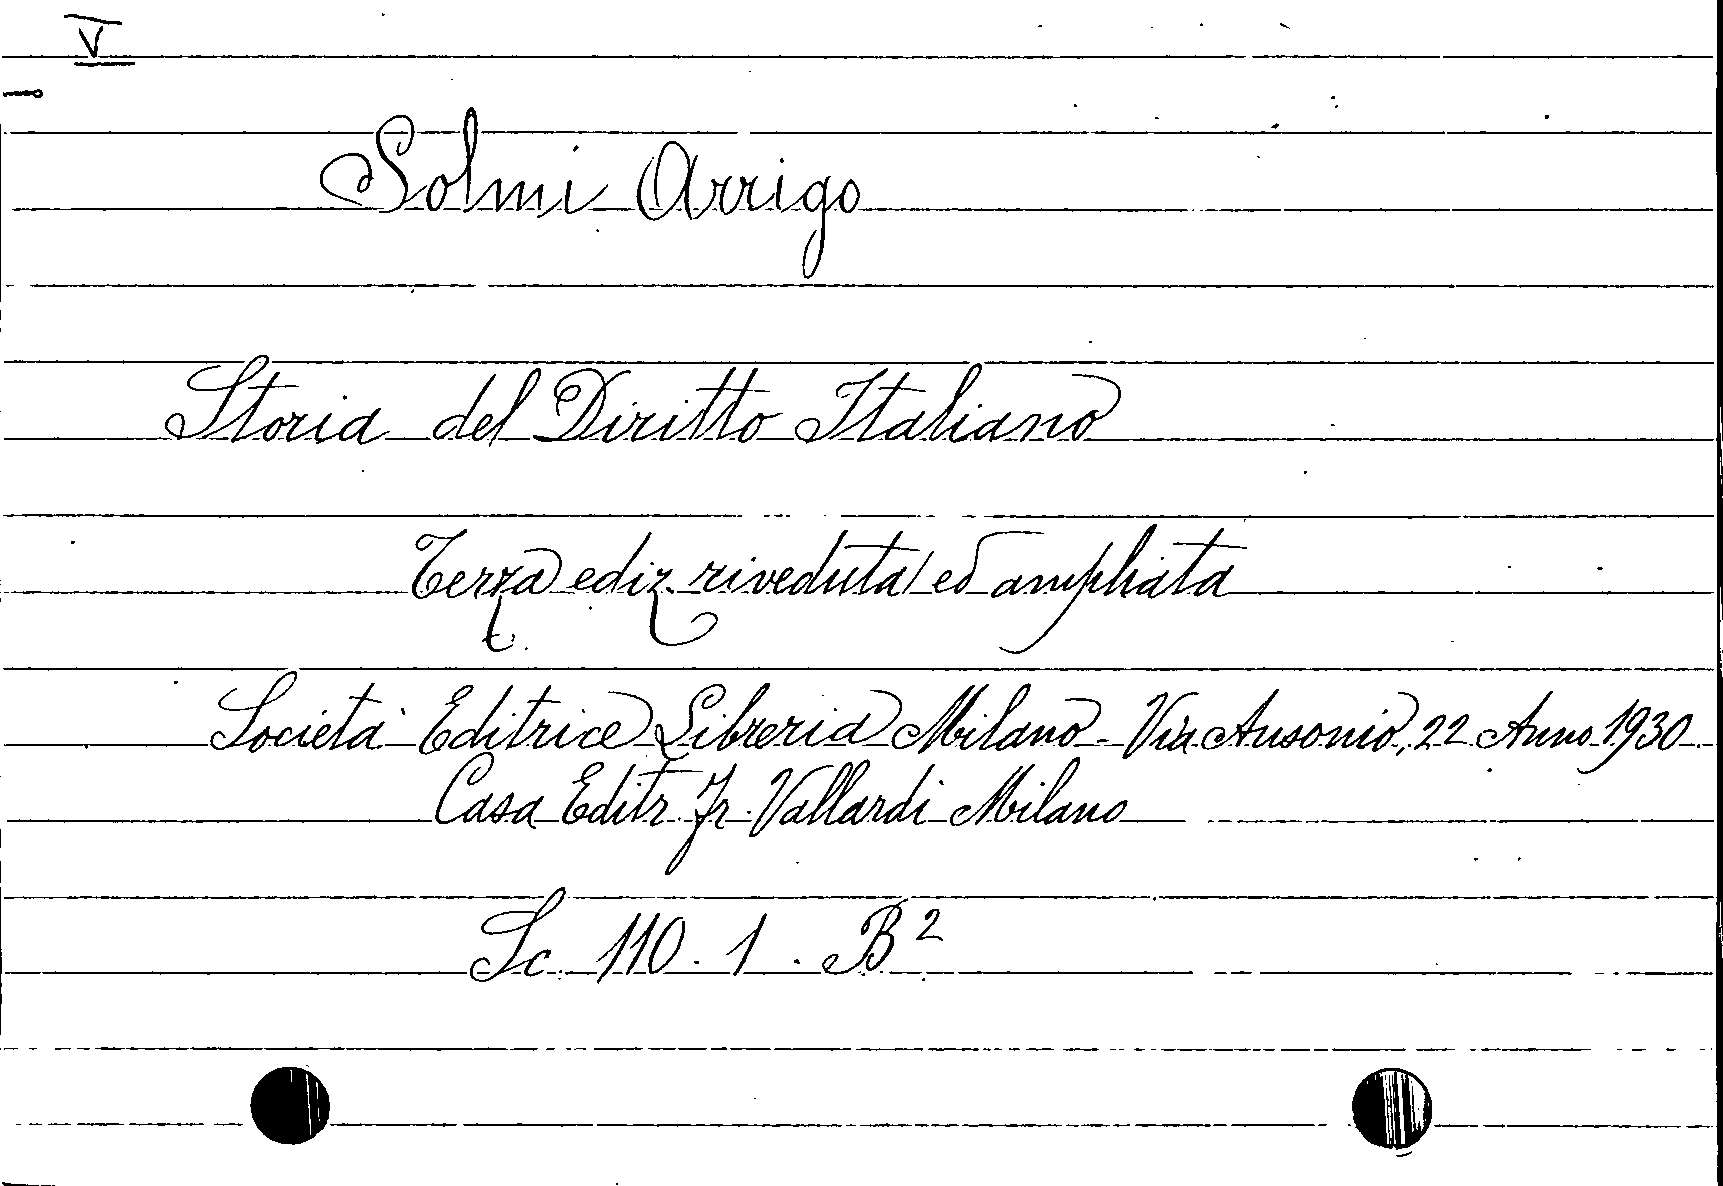 V
Solmi Arrigo
Storia del Diritto Italiano
Terza ediz. riveduta ed ampliata
Società Editrice Libreria Milano - Via Ausonio, 22 Anno 1930
Casa Editr. Fr. Vallardi Milano
Sc. 110 . 1 . B²